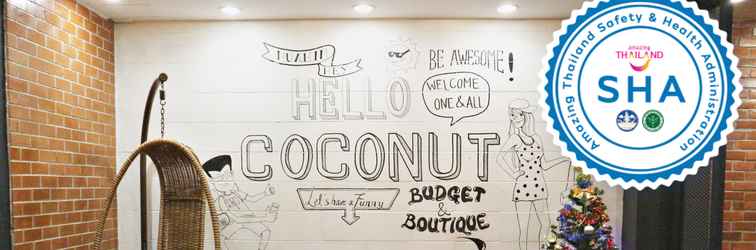 HELLO
COCONUT
BE AWESOME!
WELCOME
ONE & ALL
Let's have a Funny
BUDGET
&
BOUTIQUE
Amazing Thailand Safety & Health Administration
amazing
THAILAND
SHA